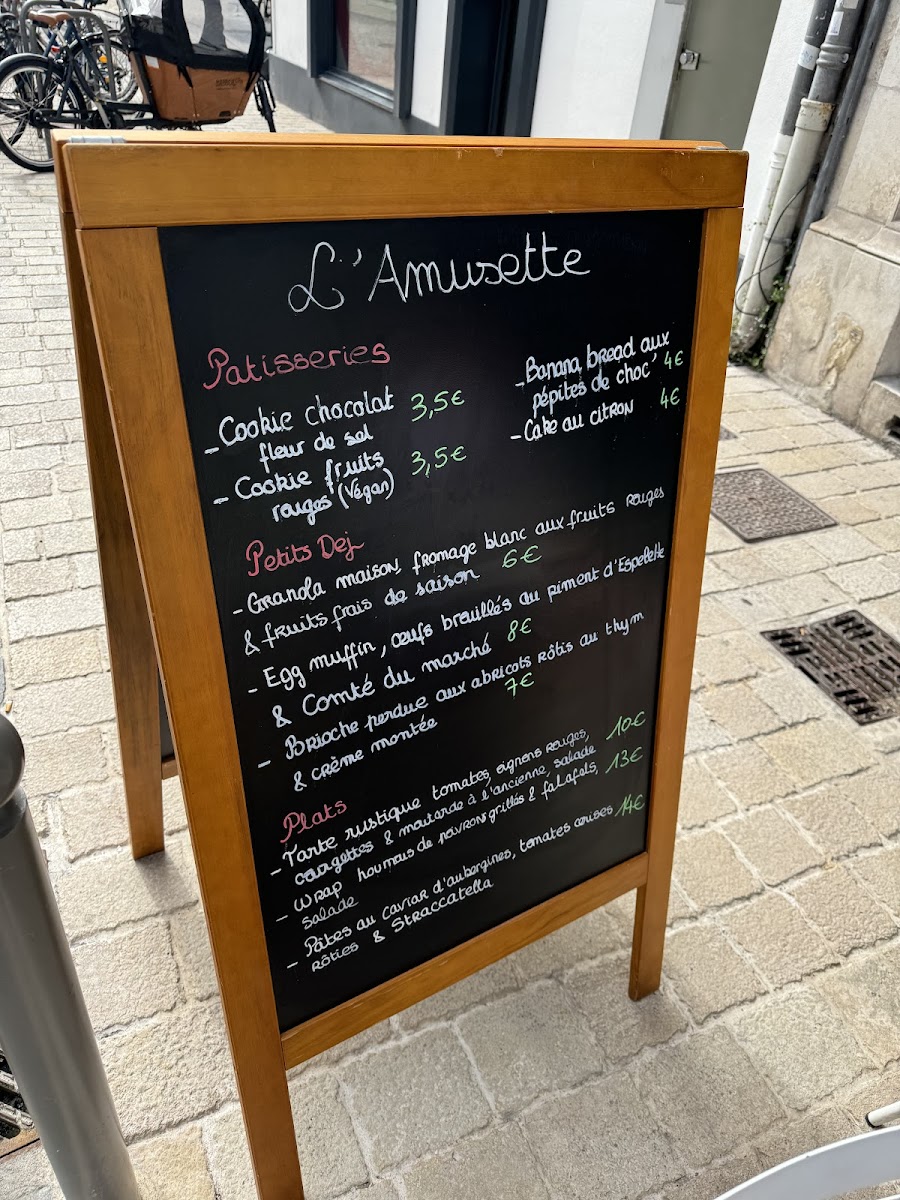 L'Amusette
Patisseries
- Cookie chocolat 3,5€
fleur de sel
- Cookie fruits 3,5€
rouges (Végan)
- Banana bread aux
pépites de choc' 4€
- Cake au citron 4€
Petits Dej
- Granola maison, fromage blanc aux fruits rouges
& fruits frais de saison 6€
- Egg muffin, œufs brouillés au piment d'Espelette
& Comté du marché 8€
- Brioche perdue aux abricots rôtis au thym
& crème montée 7€
Plats
- Tarte rustique tomates, oignons rouges, 10€
courgettes & moutarde à l'ancienne, salade
- Wrap houmous de poivrons grillés & falafels, 13€
salade
- Pâtes au caviar d'aubergines, tomates cerises 14€
rôties & Straccatella